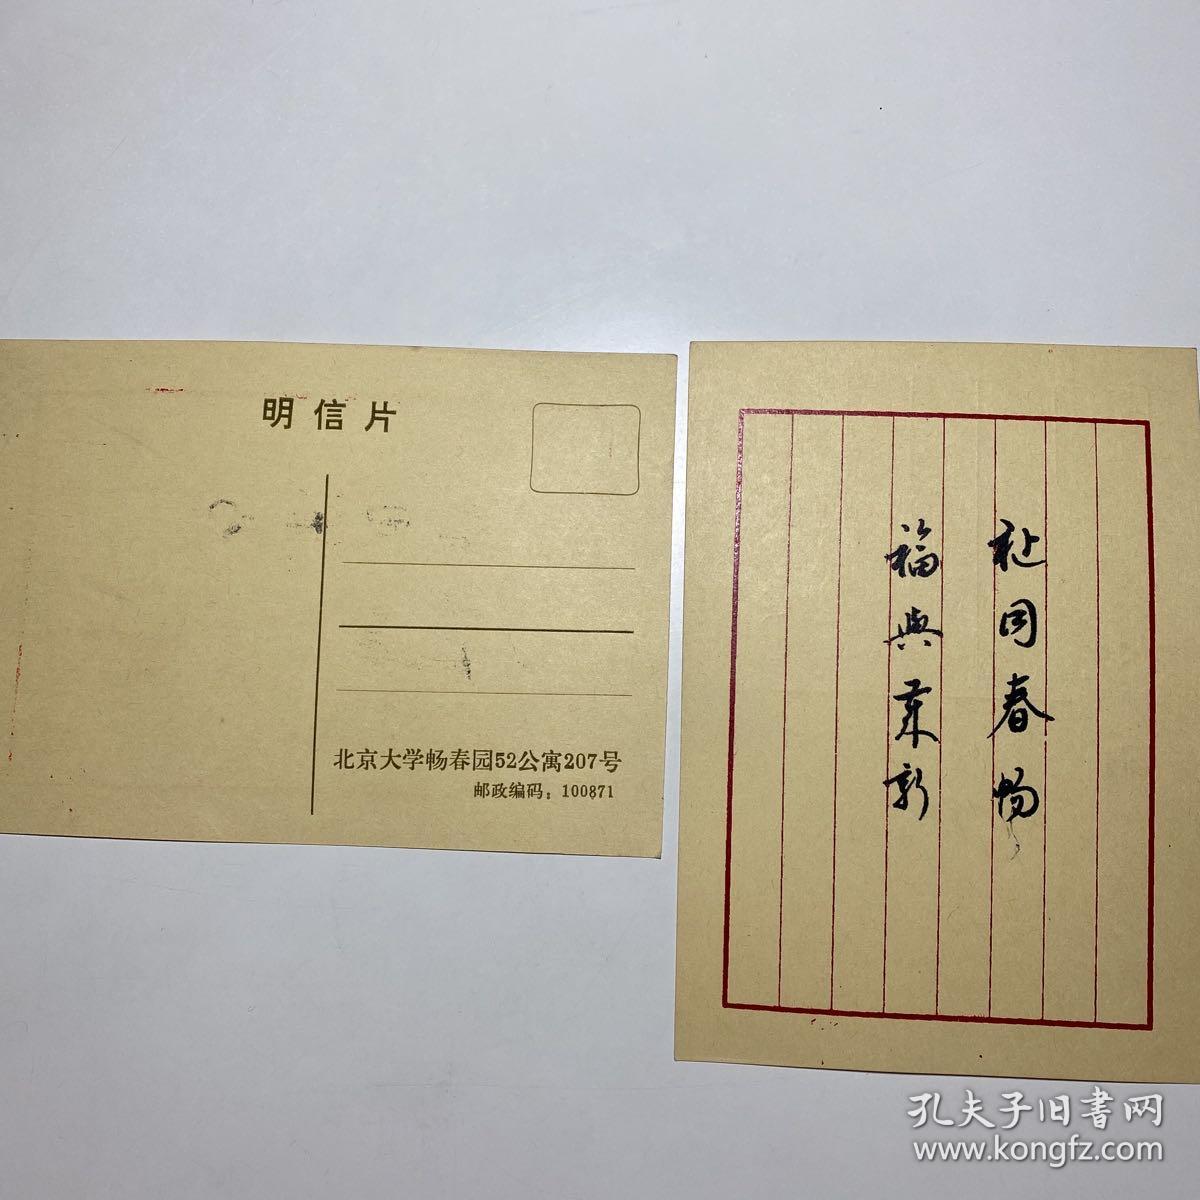 明信片
北京大学畅春园52公寓207号
邮政编码：100871
祉同春畅
福與菓新
孔夫子旧書网
www.kongfz.com